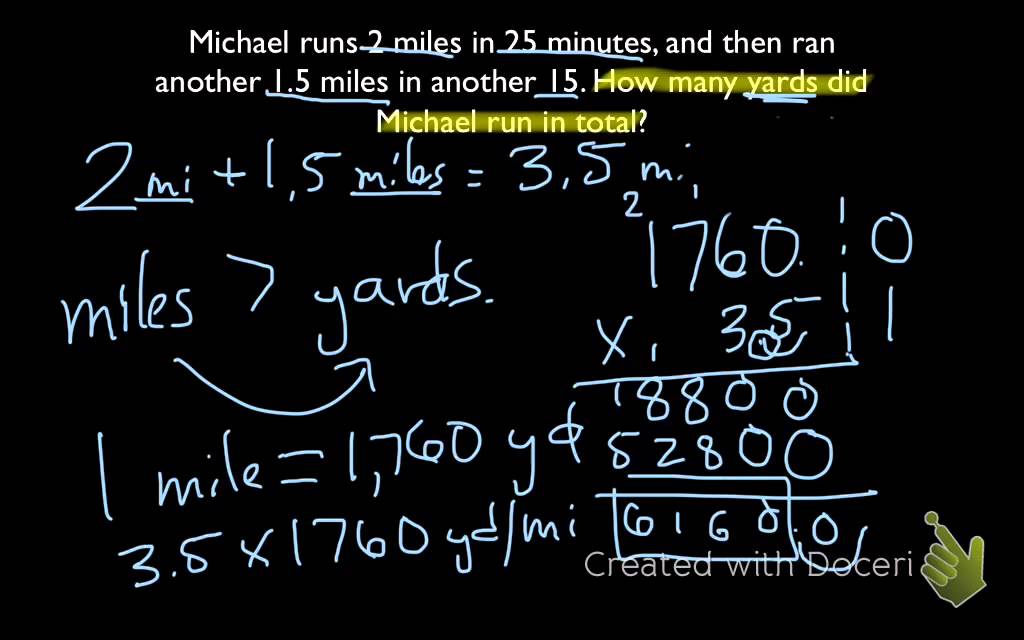 Michael runs 2 miles in 25 minutes, and then ran
another 1.5 miles in another 15. How many yards did
Michael run in total?
2 mi + 1,5 miles = 3.5 mi,
2
1760. 0
miles > yards.
x 3.5 1
18800
1 mile = 1,760 yd
52800
3.5 x 1760 yd/mi
6160.0
Created with Doceri